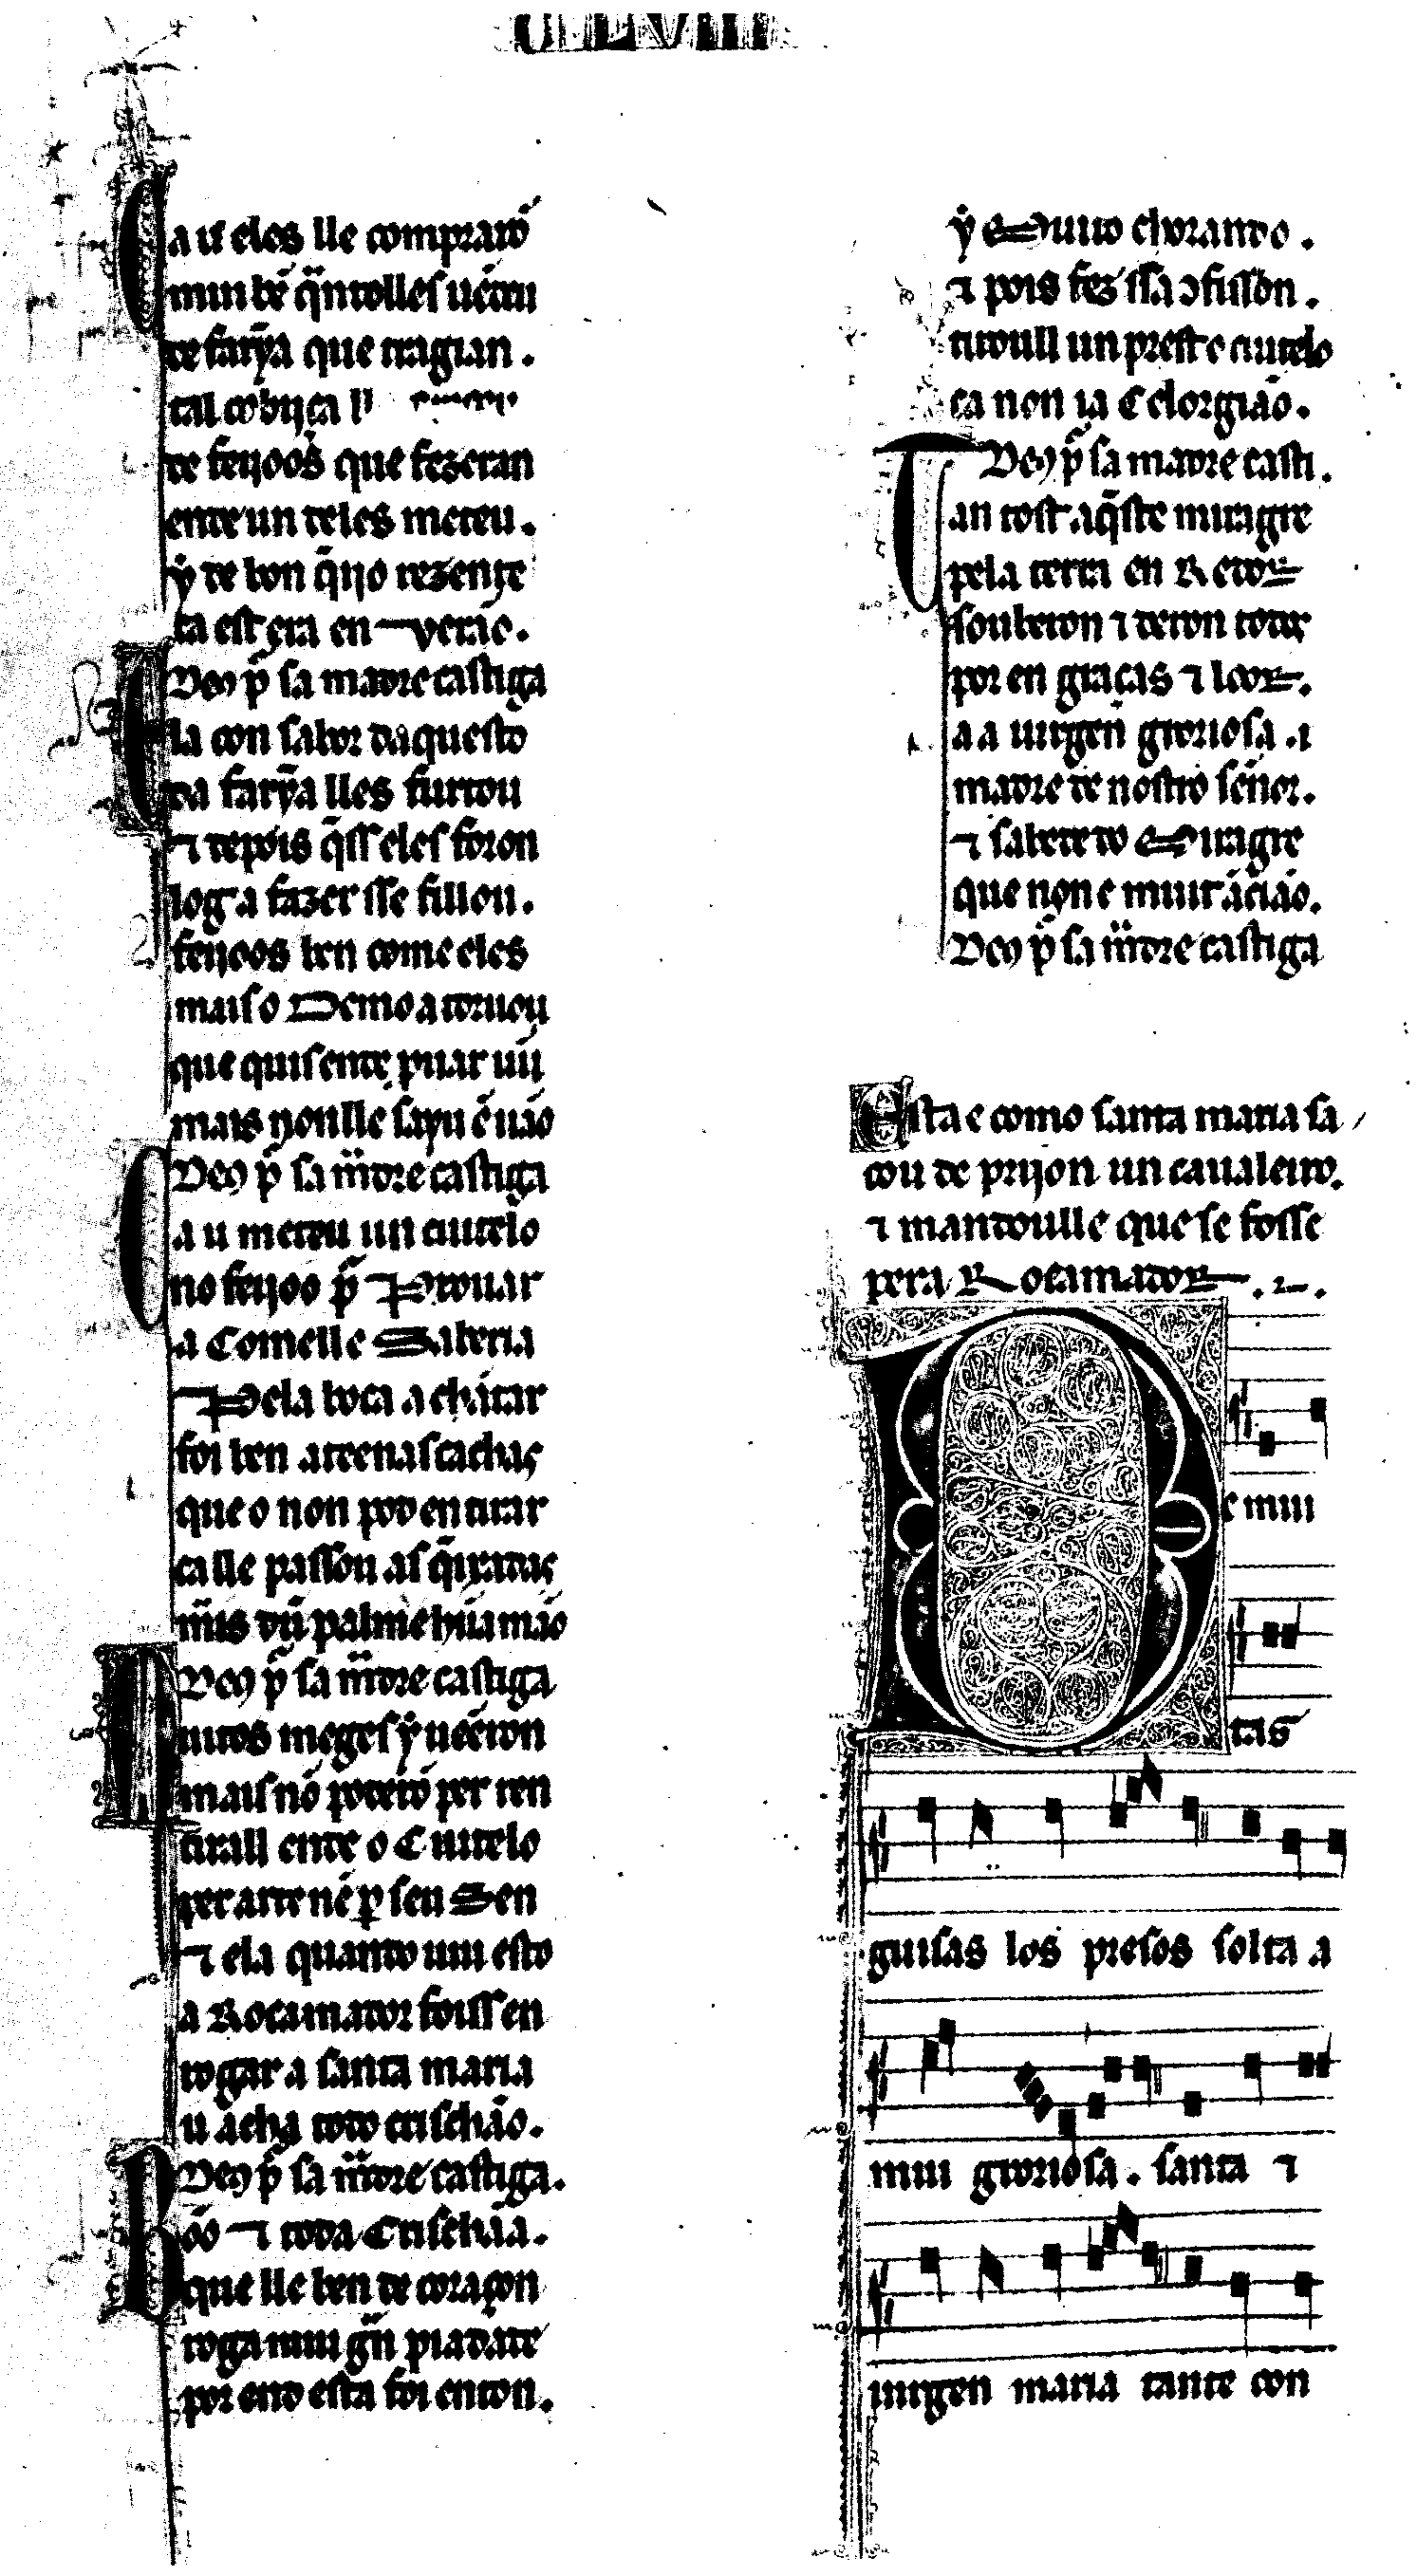 CLVIII
Ca u eles lle compraron
mui bẽ q̃ntolles uẽdeu
de farỹa que tragian.
tal cobijça ll
de feijoos que fezeran
ente un deles meteu.
ỹ de bon q̃ijo rezente
ca est era en verão.
Deꝯ p̃ sa madre castiga
Ela con sabor daquesto
da farỹa lles furtou
⁊ depois q̃ss eles foron
log a fazer sse fillou.
feijoos ben come eles
mais o Demo a toruou
que quis ente puar uĩj
mais nonlle sayu ẽ uão
Deꝯ p̃ sa m̃dre castiga
Ca u meteu un cuitelo
no feijoo p̃ Prouar
a Comelle Saberia
Pela boca a chãtar
foi ben atẽenas cachas
que o non pod en tirar
ca lle passon as q̃ixadas
mais dũ palm e hũa mão
Deꝯ p̃ sa m̃dre castiga
Muitos meges ỹ uẽeron
mais nõ poderõ per ren
tirall ente o Cuitelo
per arte nẽ ꝑ seu Sen
⁊ ela quando uiu esto
a Rocamador foiss en
rogar a santa maria
u ácha todo crischão.
Deꝯ p̃ sa m̃dre castiga.
Roõ ⁊ toda Crischãa.
que lle ben de coraçon
roga mui gñ piadade
por end esta foi enton.
ỹ e Muito chorando.
⁊ pois fez ssa ↄfisson.
tiroull un preste o cuitelo
ca non ia Celorgião.
Deꝯ p̃ sa madre casti.
Tan tost aq̃ste miragre
pela terra en Redor
souberon ⁊ deron todos
por en graças ⁊ loor.
a a uirgen groriosa. ⁊
madre de nostro sẽnor.
⁊ sabede do Miragre
que non e mui t ãcião.
Deꝯ p̃ sa m̃dre castiga
Esta e como santa maria sa
cou de prijon un caualeiro.
⁊ mandoulle que se fosse
pera Rocamador.
De mui
tas
guisas los presos solta a
mui groriosa. santa ⁊
uirgen maria tante con